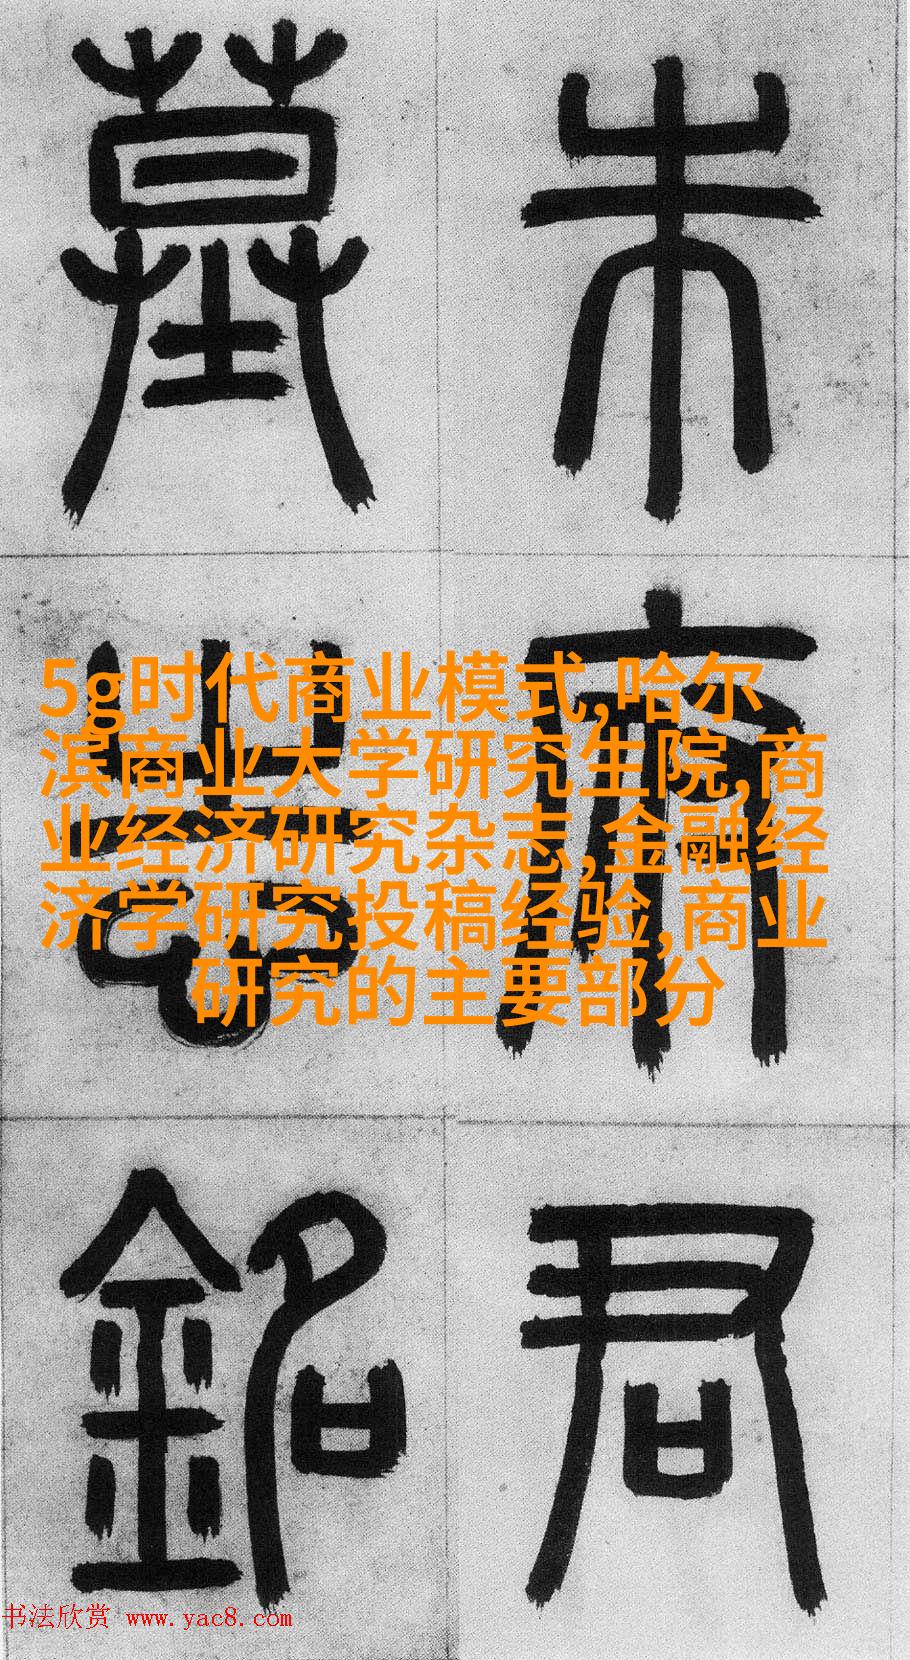 朱府君
墓志銘
5g时代商业模式,哈尔
滨商业大学研究生院,商
业经济研究杂志,金融经
济学研究投稿经验,商业
研究的主要部分
书法欣赏 www.yac8.com